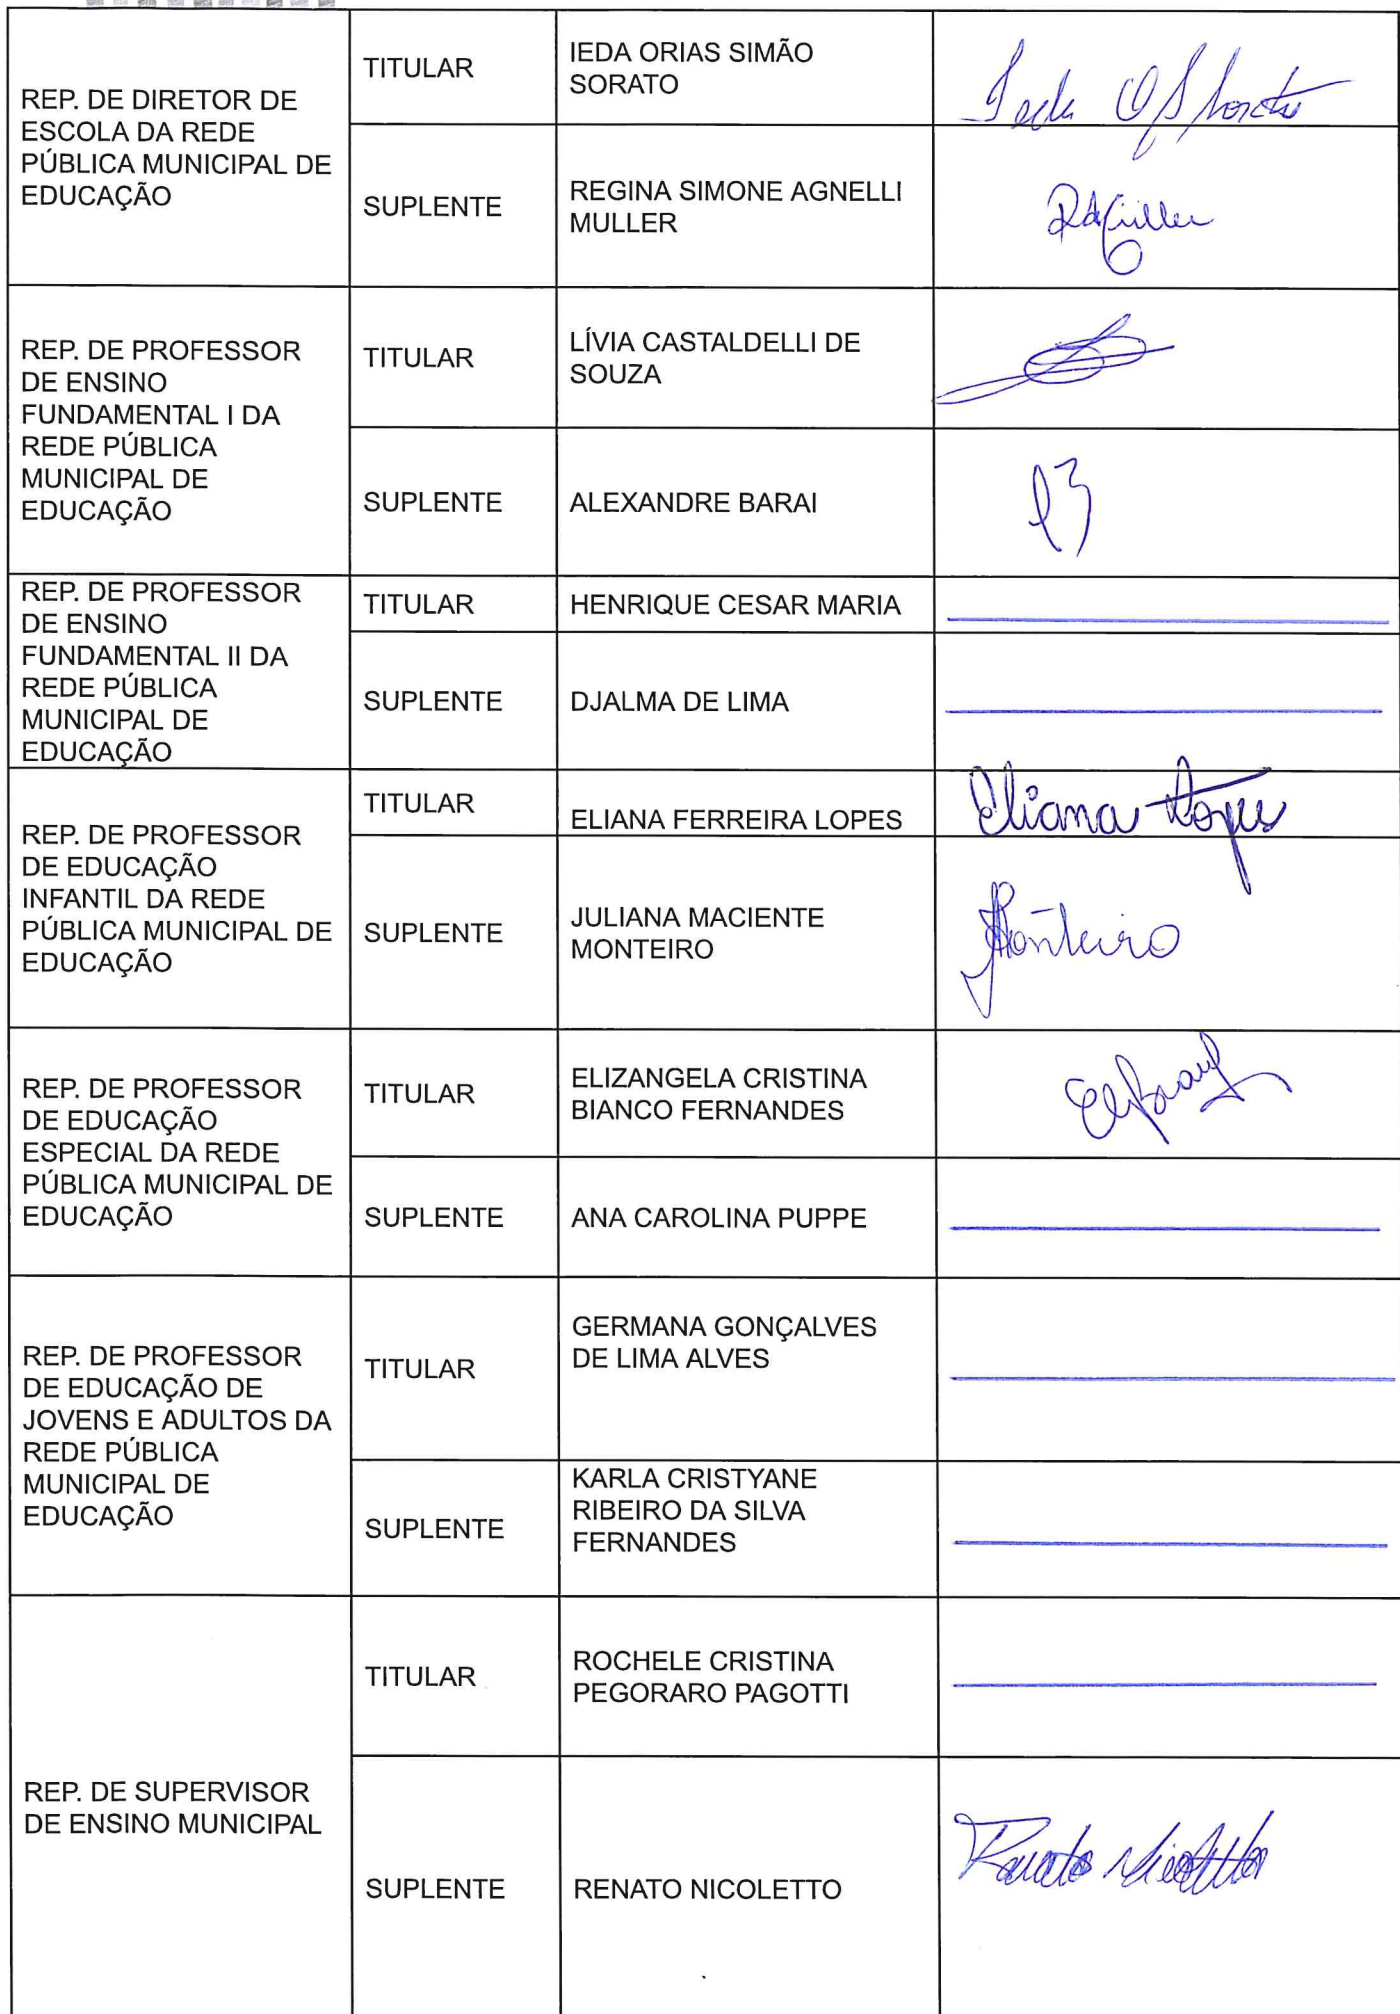 REP. DE DIRETOR DE
ESCOLA DA REDE
PÚBLICA MUNICIPAL DE
EDUCAÇÃO
TITULAR
IEDA ORIAS SIMÃO
SORATO
SUPLENTE
REGINA SIMONE AGNELLI
MULLER
REP. DE PROFESSOR
DE ENSINO
FUNDAMENTAL I DA
REDE PÚBLICA
MUNICIPAL DE
EDUCAÇÃO
TITULAR
LÍVIA CASTALDELLI DE
SOUZA
SUPLENTE
ALEXANDRE BARAI
REP. DE PROFESSOR
DE ENSINO
FUNDAMENTAL II DA
REDE PÚBLICA
MUNICIPAL DE
EDUCAÇÃO
TITULAR
HENRIQUE CESAR MARIA
SUPLENTE
DJALMA DE LIMA
REP. DE PROFESSOR
DE EDUCAÇÃO
INFANTIL DA REDE
PÚBLICA MUNICIPAL DE
EDUCAÇÃO
TITULAR
ELIANA FERREIRA LOPES
Eliana Lopes
SUPLENTE
JULIANA MACIENTE
MONTEIRO
JMonteiro
REP. DE PROFESSOR
DE EDUCAÇÃO
ESPECIAL DA REDE
PÚBLICA MUNICIPAL DE
EDUCAÇÃO
TITULAR
ELIZANGELA CRISTINA
BIANCO FERNANDES
SUPLENTE
ANA CAROLINA PUPPE
REP. DE PROFESSOR
DE EDUCAÇÃO DE
JOVENS E ADULTOS DA
REDE PÚBLICA
MUNICIPAL DE
EDUCAÇÃO
TITULAR
GERMANA GONÇALVES
DE LIMA ALVES
SUPLENTE
KARLA CRISTYANE
RIBEIRO DA SILVA
FERNANDES
REP. DE SUPERVISOR
DE ENSINO MUNICIPAL
TITULAR
ROCHELE CRISTINA
PEGORARO PAGOTTI
SUPLENTE
RENATO NICOLETTO
Renato Nicoletto